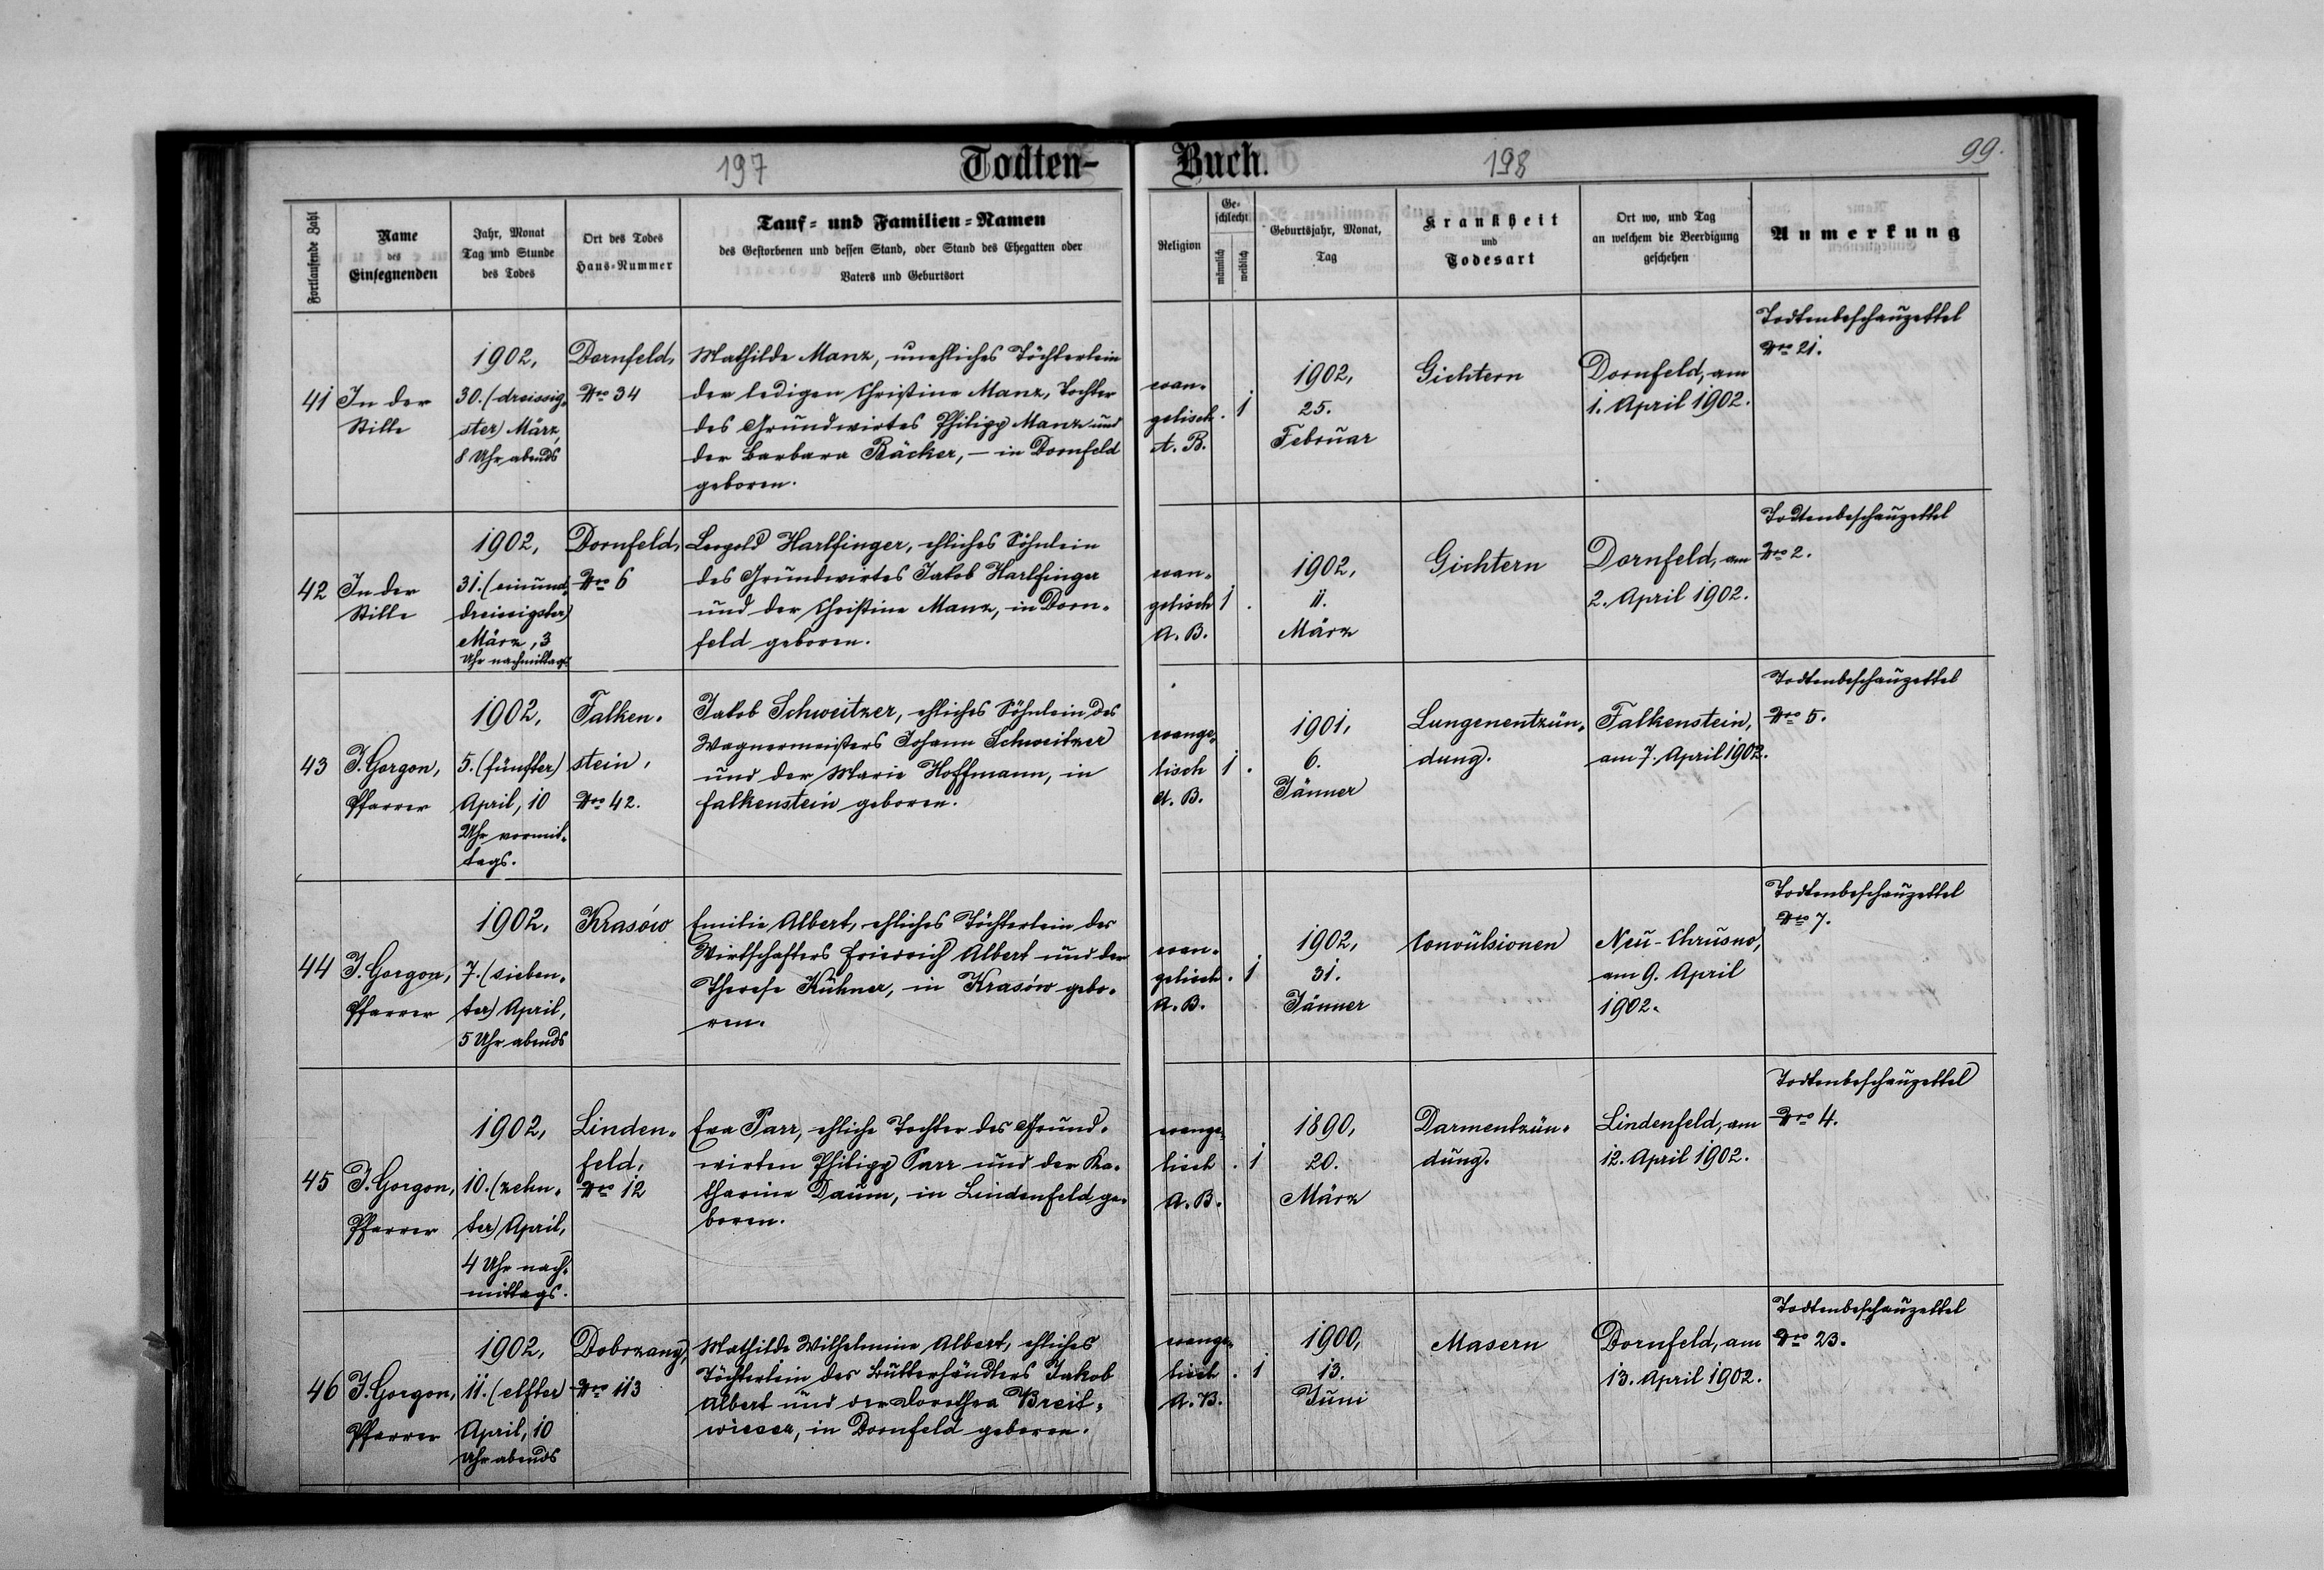 197 Todten-
Buch. 198 99.
Fortlaufende Zahl
Name
des
Einsegnenden
Jahr, Monat
Tag und Stunde
des Todes
Ort des Todes
Haus-Nummer
Tauf- und Familien-Namen
des Gestorbenen und dessen Stand, oder Stand des Ehegatten oder
Vaters und Geburtsort
Religion
Ge-
schlecht
männlich
weiblich
Geburtsjahr, Monat,
Tag
Krankheit
und
Todesart
Ort wo, und Tag
an welchem die Beerdigung
geschehen
Anmerkung
41
In der
Stille
1902,
30. (dreissig-
ster) März,
8 Uhr abends
Dornfeld,
Nro 34
Mathilde Manz, unehliches Töchterlein
der ledigen Christine Manz, Tochter
des Grundwirtes Philipp Manz und
der Barbara Bäcker, – in Dornfeld
geboren.
evan-
gelisch
A. B.
. 1
1902,
25.
Februar
Gichtern
Dornfeld, am
1. April 1902.
Todtenbeschauzettel
Nro 21.
42
In der
Stille
1902,
31. (einund-
dreissigster)
März, 3
Uhr nachmittags
Dornfeld,
Nro 6
Leopold Harlfinger, ehliches Söhnlein
des Grundwirtes Jakob Harlfinger
und der Christine Manz, in Dorn-
feld geboren.
evan-
gelisch
A. B.
1 .
1902,
11.
März
Gichtern
Dornfeld, am
2. April 1902.
Todtenbeschauzettel
Nro 2.
43
J. Gorgon,
Pfarrer
1902,
5. (fünfter)
April, 10
Uhr vormit-
tags.
Falken-
stein,
Nro 42.
Jakob Schweitzer, ehliches Söhnlein des
Wagnermeisters Johann Schweitzer
und der Marie Hoffmann, in
Falkenstein geboren.
evange-
lisch
A. B.
1 .
1901,
6.
Jänner
Lungenentzün-
dung.
Falkenstein,
am 7. April 1902.
Todtenbeschauzettel
Nro 5.
44
J. Gorgon,
Pfarrer
1902,
7. (sieben-
ter) April,
5 Uhr abends
Krasów
Emilie Albert, ehliches Töchterlein des
Wirtschafters Friedrich Albert und der
Therese Kühner, in Krasów gebo-
ren.
evan-
gelisch
A. B.
. 1
1902,
31.
Jänner
Convulsionen
Neu-Chrusno,
am 9. April
1902.
Todtenbeschauzettel
Nro 7.
45
J. Gorgon,
Pfarrer
1902,
10. (zehn-
ter) April,
4 Uhr nach-
mittags.
Linden-
feld,
Nro 12
Eva Parr, ehliche Tochter des Grund-
wirten Philipp Parr und der Ka-
tharine Daum, in Lindenfeld ge-
boren.
evange-
lisch
A. B.
. 1
1890,
20.
März
Darmentzün-
dung.
Lindenfeld, am
12. April 1902.
Todtenbeschauzettel
Nro 4.
46
J. Gorgon,
Pfarrer
1902,
11. (elfter
April, 10
Uhr abends
Dobrzany,
Nro 113
Mathilde Wilhelmine Albert, ehliches
Töchterlein des Butterhändlers Jakob
Albert und der Dorothea Breit-
wieser, in Dornfeld geboren.
evange-
lisch
A. B.
. 1
1900,
13.
Juni
Masern
Dornfeld, am
13. April 1902.
Todtenbeschauzettel
Nro 23.